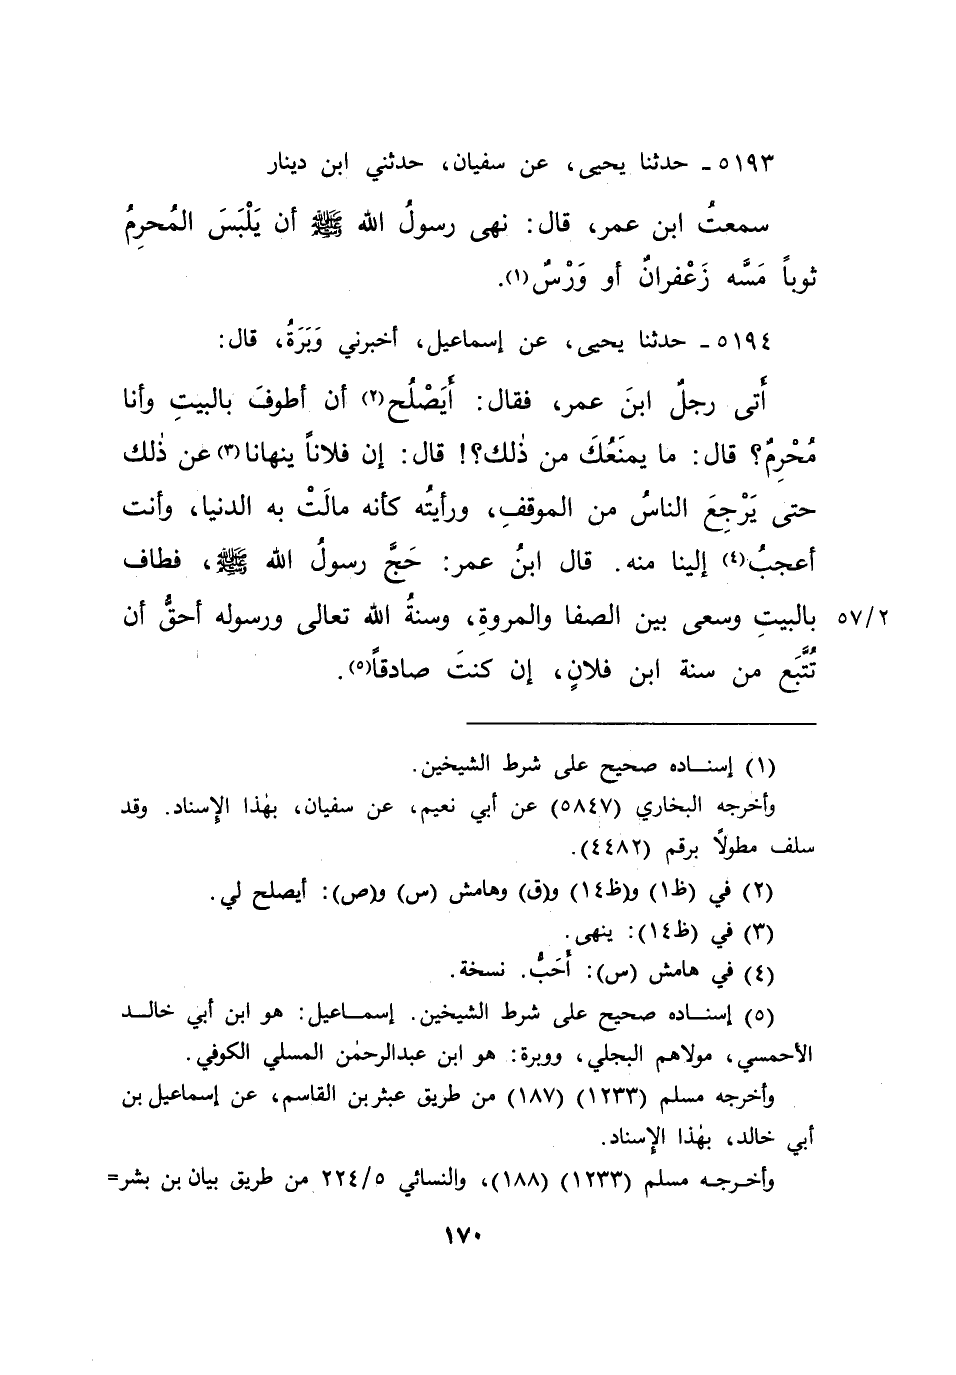 ٥١٩٣ ـ حدثنا يحيى، عن سفيان، حدثني ابن دينار
سمعتُ ابن عمر، قال: نهى رسولُ الله ﷺ أن يَلْبَسَ المُحرِمُ
ثوباً مَسَّه زَعْفرانٌ أو وَرْسٌ(١).
٥١٩٤ ـ حدثنا يحيى، عن إسماعيل، أخبرني وَبَرَةُ، قال:
أَتى رجلٌ ابنَ عمر، فقال: أَيَصْلُح(٢) أن أطوفَ بالبيتِ وأنا
مُحْرِمٌ؟ قال: ما يمنَعُكَ من ذٰلك؟! قال: إن فلاناً ينهانا(٣) عن ذٰلك
حتى يَرْجِعَ الناسُ من الموقفِ، ورأيتُه كأنه مالَتْ به الدنيا، وأنت
أعجبُ(٤) إلينا منه. قال ابنُ عمر: حَجَّ رسولُ الله ﷺ، فطاف
بالبيتِ وسعى بين الصفا والمروةِ، وسنةُ الله تعالى ورسوله أحقُّ أن
٥٧/٢
تُتَّبَع من سنة ابن فلانٍ، إن كنتَ صادقاً(٥).
(١) إسنـاده صحيح على شرط الشيخين.
وأخرجه البخاري (٥٨٤٧) عن أبي نعيم، عن سفيان، بهٰذا الإسناد. وقد
سلف مطولاً برقم (٤٤٨٢).
(٢) في (ظ١) و(ظ١٤) و(ق) وهامش (س) و(ص): أيصلح لي.
(٣) في (ظ١٤): ينهى.
(٤) في هامش (س): أَحَبُّ. نسخة.
(٥) إسنـاده صحيح على شرط الشيخين. إسمـاعيل: هو ابن أبي خالـد
الأحمسي، مولاهم البجلي، ووبرة: هو ابن عبدالرحمٰن المسلي الكوفي.
وأخرجه مسلم (١٢٣٣) (١٨٧) من طريق عبثر بن القاسم، عن إسماعيل بن
أبي خالد، بهٰذا الإسناد.
وأخـرجـه مسلم (١٢٣٣) (١٨٨)، والنسائي ٢٢٤/٥ من طريق بيان بن بشر=
١٧٠